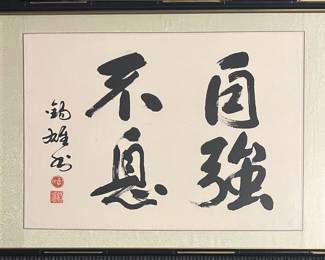 自強
不息
錫雄書